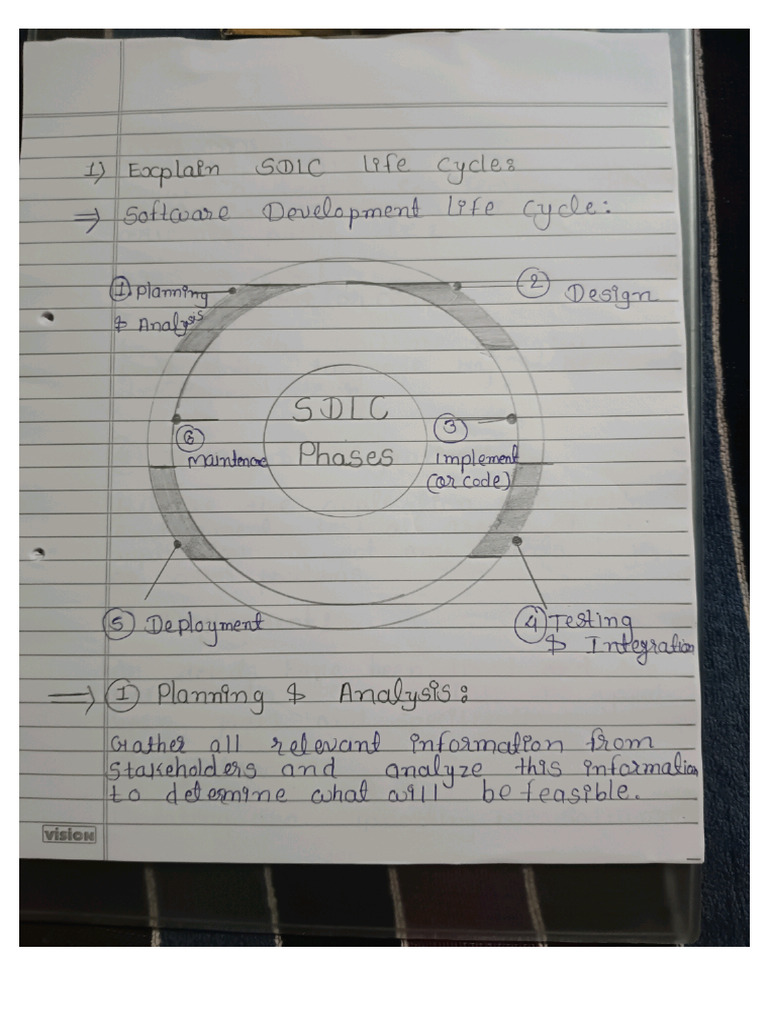 1) Explain SDLC life cycle:
⇒ Software Development life cycle:
① Planning
& Analysis
② Design
SDLC
Phases
③
implement
(or code)
⑥
maintence
⑤ Deployment
④ Testing
& Integration
⇒ ① Planning & Analysis:
Gather all relevant information from
stakeholders and analyze this information
to determine what will be feasible.
vision